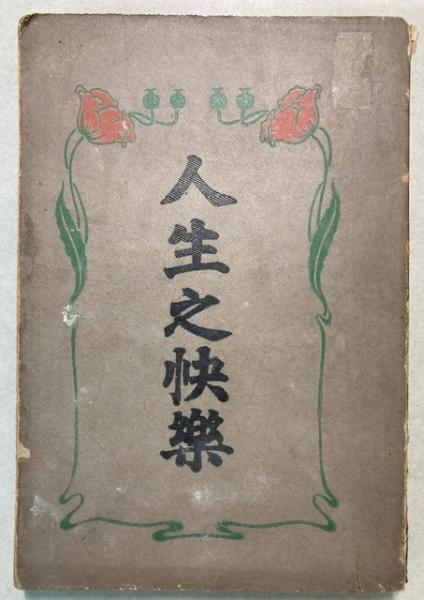 人生之快樂